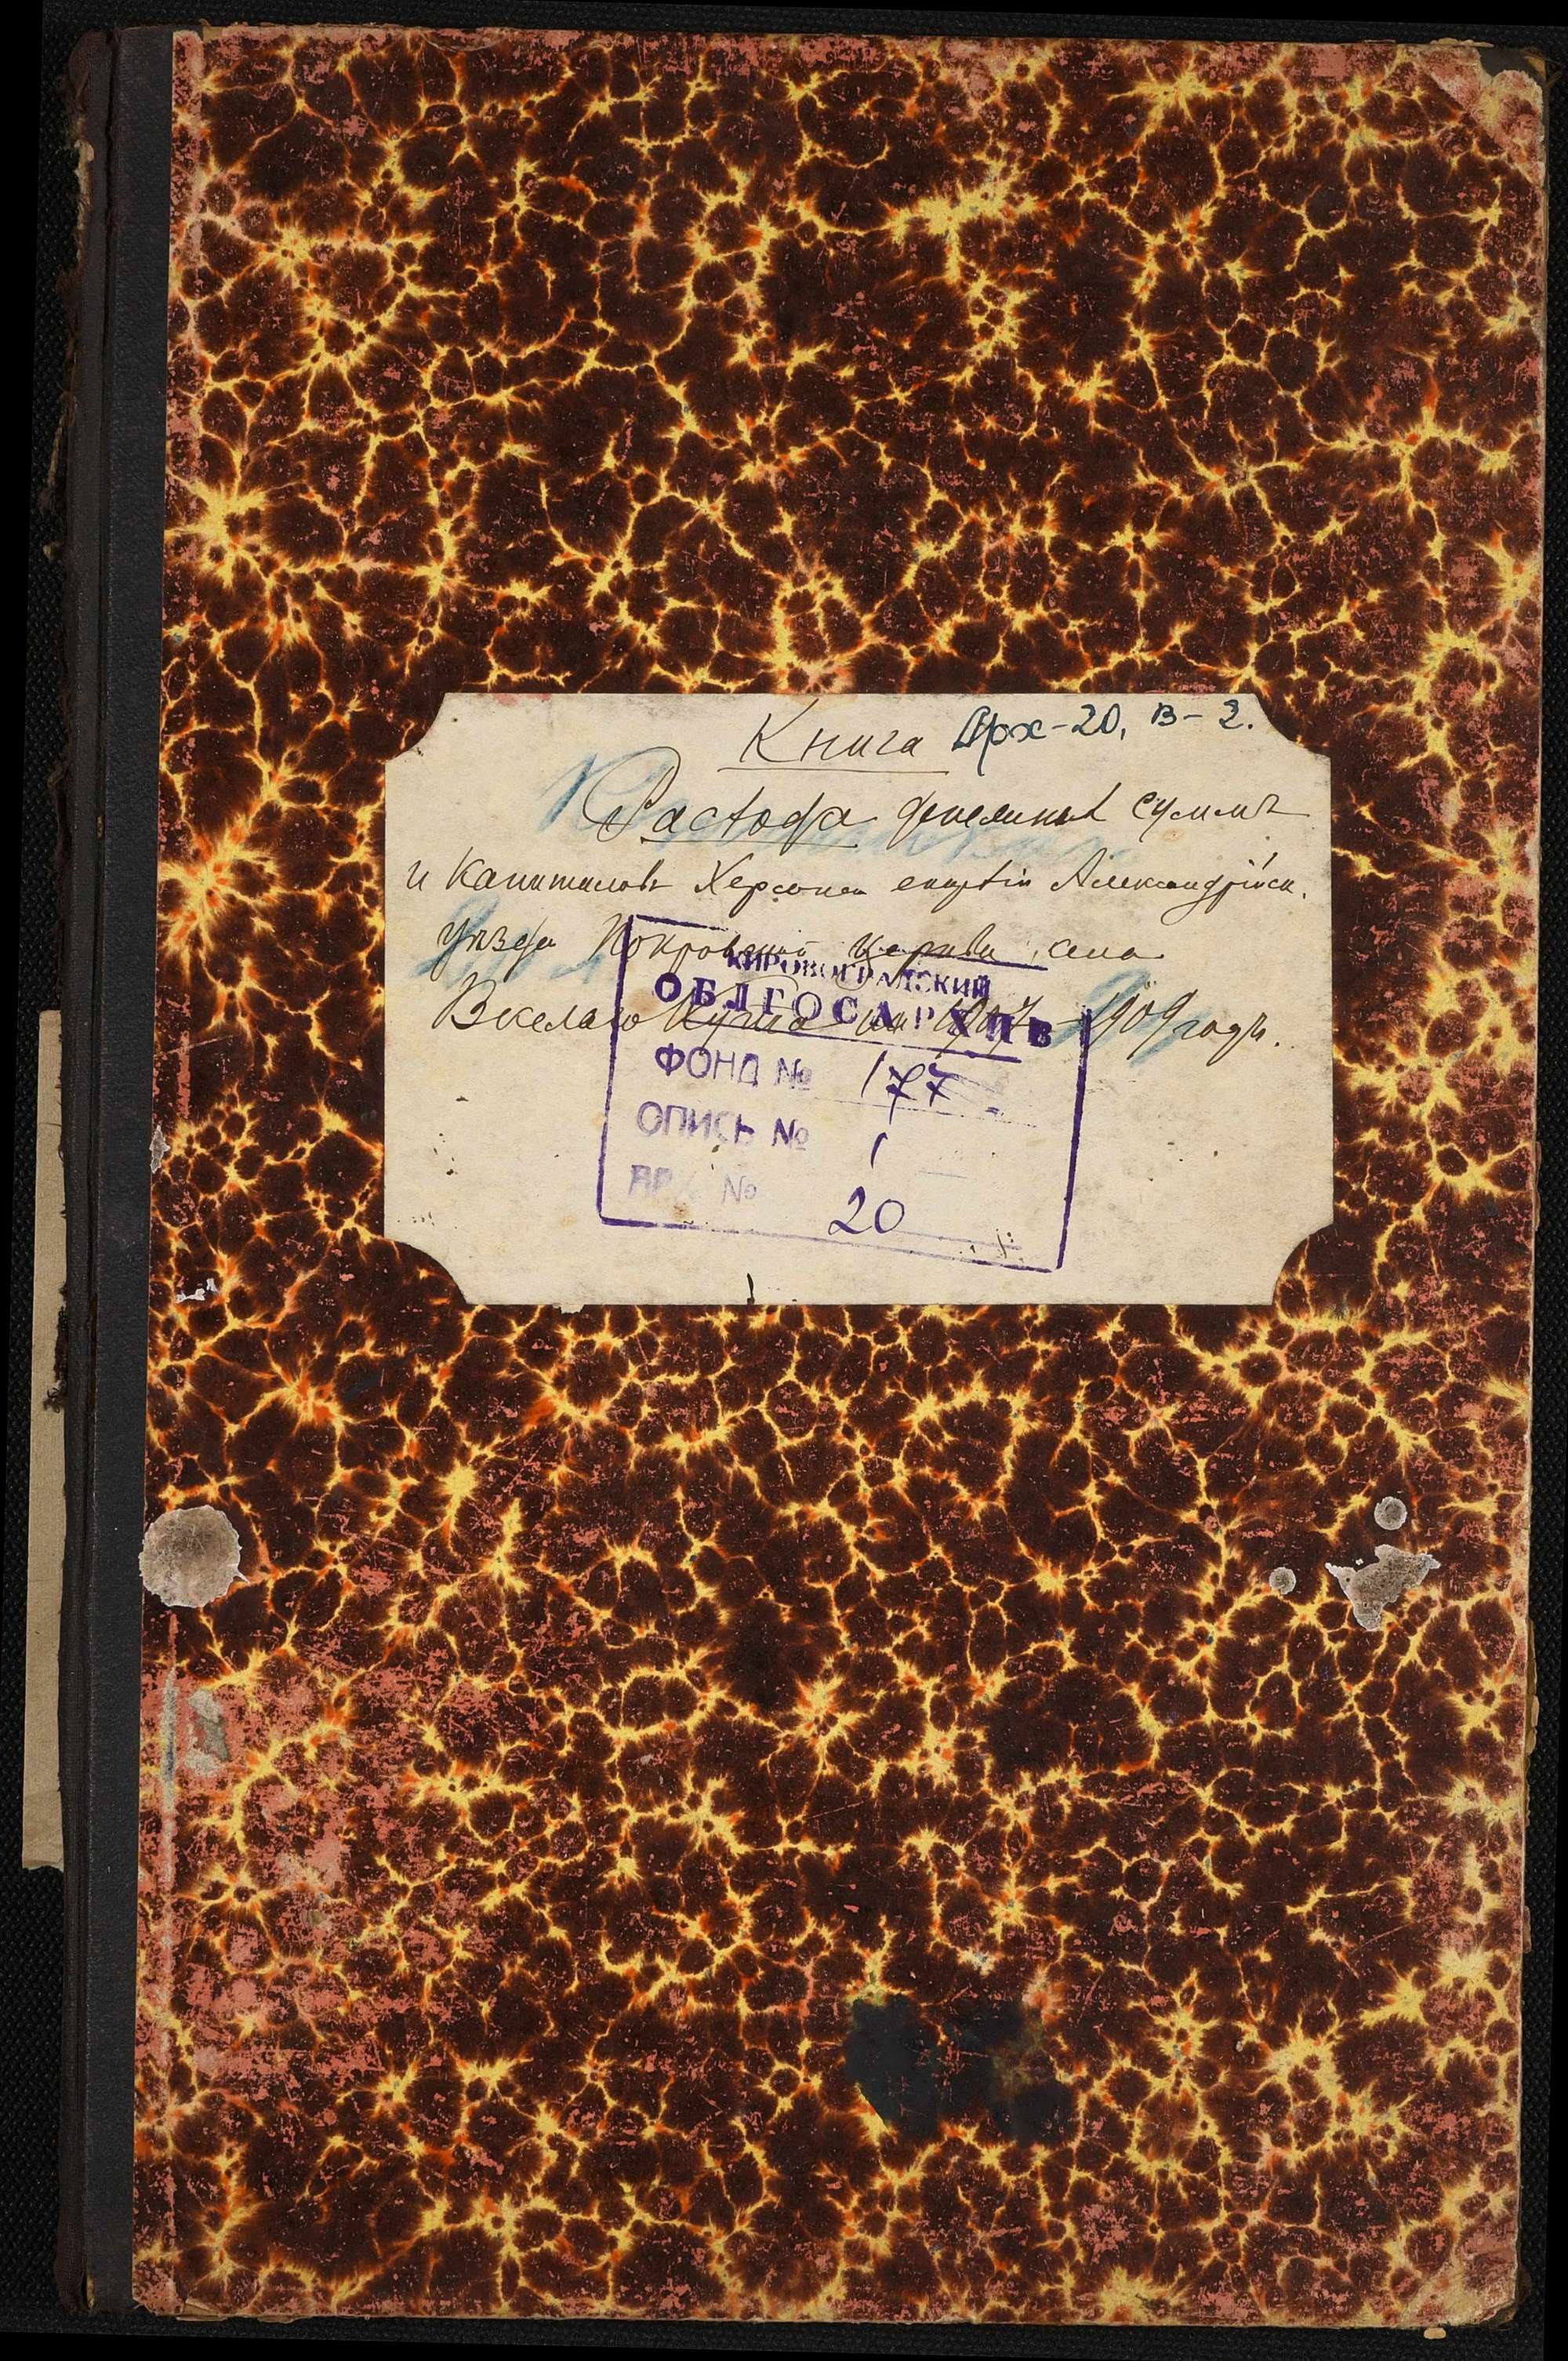 Книга Арх-20, в-2.
Расхода денежныхъ суммъ
и Капиталовъ Херсонск епархіи Александрійск.
уѣзда Покровской Церкви, села
Веселаго Кута на 1907-1909 годъ.
КИРОВОГРАДСКИЙ
ОБЛГОСАРХИВ
ФОНД № 177
ОПИСЬ № 1
АРХ № 20